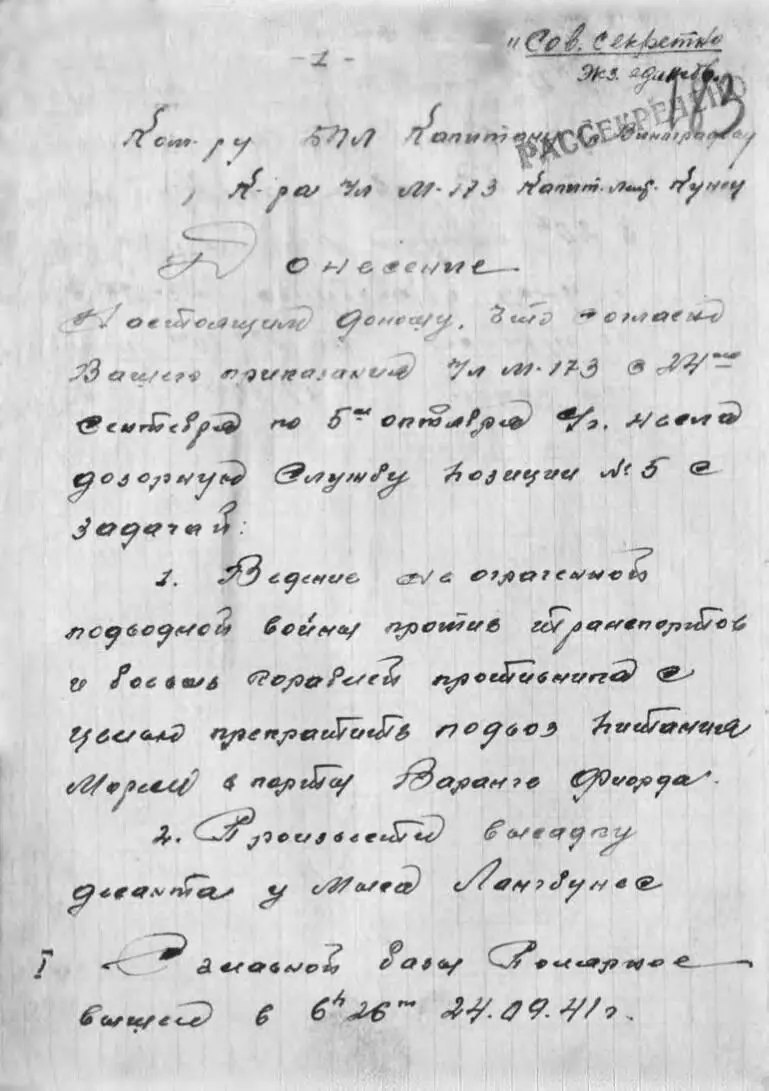 - 1 -
"Сов. секретно
Экз. единств.
РАССЕКРЕЧЕНО
Ком-ру БПЛ Капитану Виноградову
К-ра п/л М-173 Капит.-лейт. Кунец
Донесение
Настоящим доношу, что согласно
Вашего приказания п/л М-173 с 24го
сентября по 5е октября с/г. несла
дозорную службу позиции № 5 с
задачей:
1. Ведение не ограниченной
подводной войны против транспортов
и боевых кораблей противника с
целью прекратить подвоз питания
морем в порты Варангер фиорда.
2. Произвести высадку
десанта у мыса Лангбунес
I С главной базы Полярное
вышел в 6h 26m 24.09.41г.